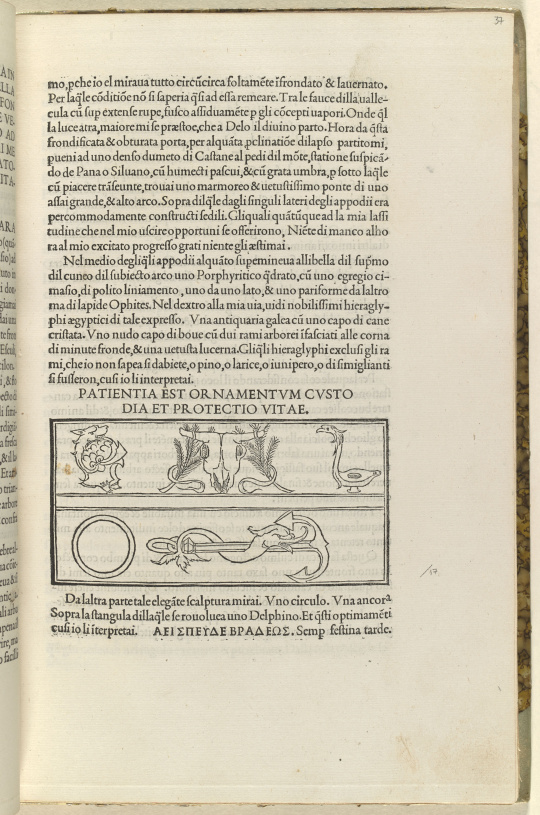 37
mo, ꝑche io el miraua tutto circũcirca foltamẽte ĩfrondato & lauernato.
Per laq̃le cõditiõe nõ si saperia q̃si ad essa remeare. Tra le fauce dilla ualle-
cula cũ sup extense rupe, fusco assiduamẽte ꝑ gli cõcepti uapori. Onde q̃l
la luce atra, maiore mi se præstoe, che a Delo il diuino parto. Hora da q̃sta
frondificata & obturata porta, per alquãta ꝓclinatiõe dilapso partitomi,
pueni ad uno denso dumeto di Castane al pedi dil mõte, statione suspicã-
do de Pana o Siluano, cũ humecti pascui, & cũ grata umbra, ꝑ sotto laq̃le
cũ piacere trãseunte, trouai uno marmoreo & uetustissimo ponte di uno
assai grande, & alto arco. Sopra dilq̃le dagli singuli lateri degli appodii era
percommodamente constructi sedili. Gli quali quãtũque ad la mia lassi
tudine che nel mio uscire opportuni se offerirono, Niẽte di manco alho
ra al mio excitato progresso grati niente gli æstimai.
Nel medio degliq̃li appodii alquãto supemineua allibella dil sup̃mo
dil cuneo dil subiecto arco uno Porphyritico q̃drato, cũ uno egregio ci-
masio, di polito liniamento, uno da uno lato, & uno pariforme da laltro
ma di lapide Ophites. Nel dextro alla mia uia, uidi nobilissimi hieragly-
phi ægyptici di tale expresso. Vna antiquaria galea cũ uno capo di cane
cristata. Vno nudo capo di boue cũ dui rami arborei ĩfasciati alle corna
di minute fronde, & una uetusta lucerna. Gliq̃li hieraglyphi exclusi gli ra
mi, che io non sapea si dabiete, o pino, o larice, o iunipero, o di simiglianti
si fusseron, cusi io li interpretai.
PATIENTIA EST ORNAMENTVM CVSTO
DIA ET PROTECTIO VITAE.
Da laltra parte tale elegãte scalptura mirai. Vno circulo. Vna ancora
Sopra la stangula dillaq̃le se rouoluea uno Delphino. Et q̃sti optimamẽti
cusi io li ĩterpretai. ΑΕΙ ΣΠΕΥΔΕ ΒΡΑΔΕΩΣ. Semp festina tarde.